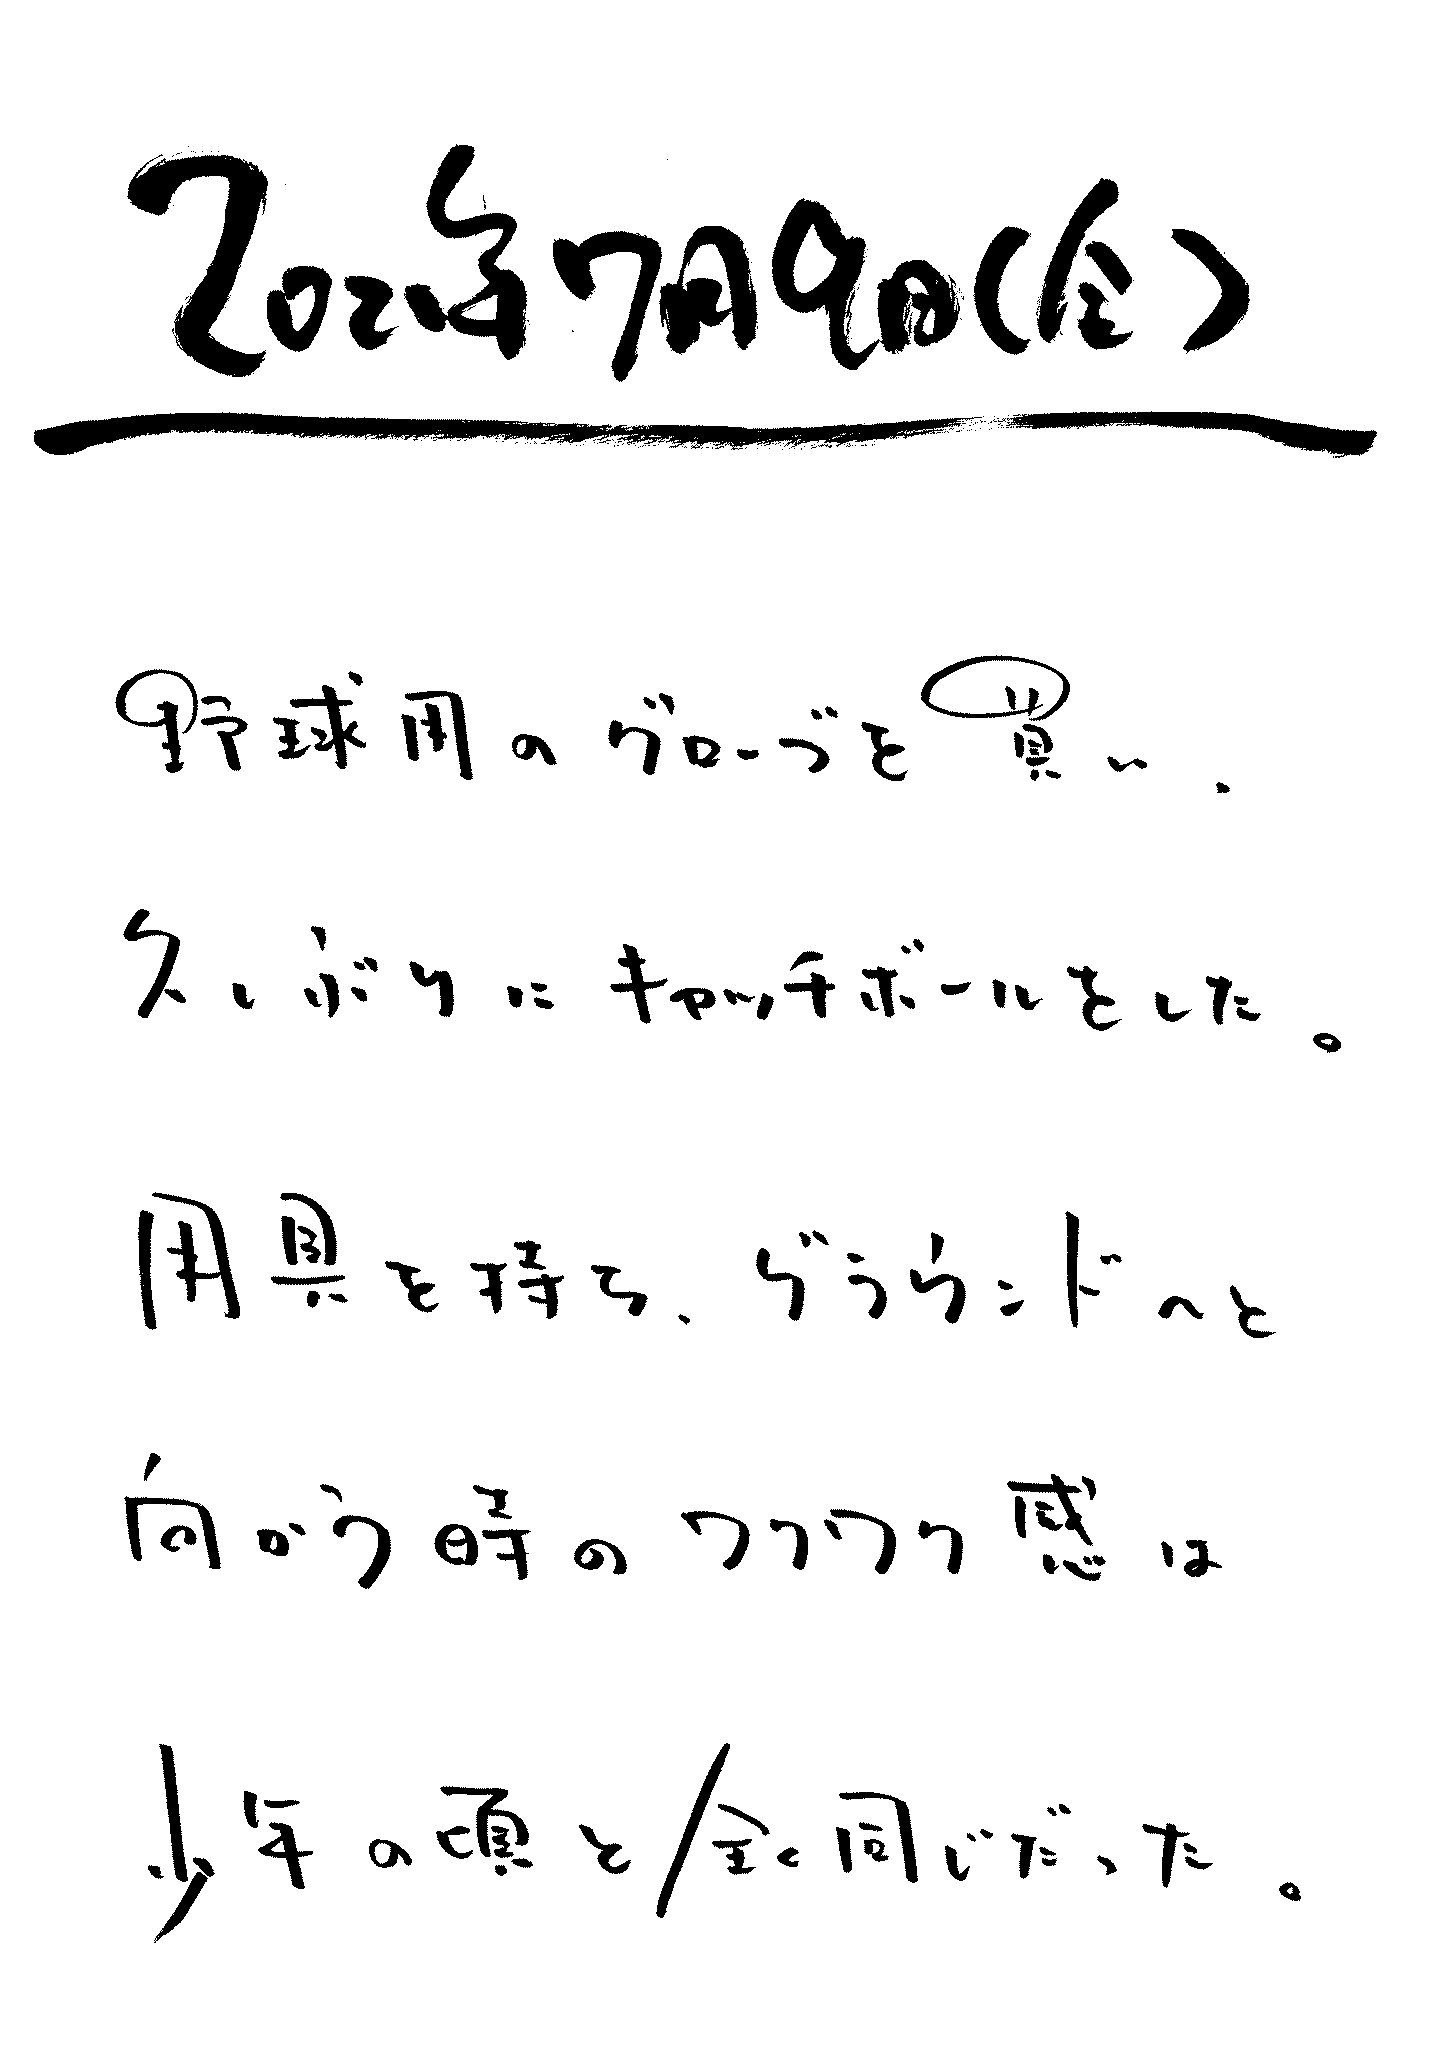 2021年7月9日(金)
野球用のグローブを買い、
久しぶりにキャッチボールをした。
用具を持ち、グラウンドへと
向かう時のワクワク感は
少年の頃と全く同じだった。